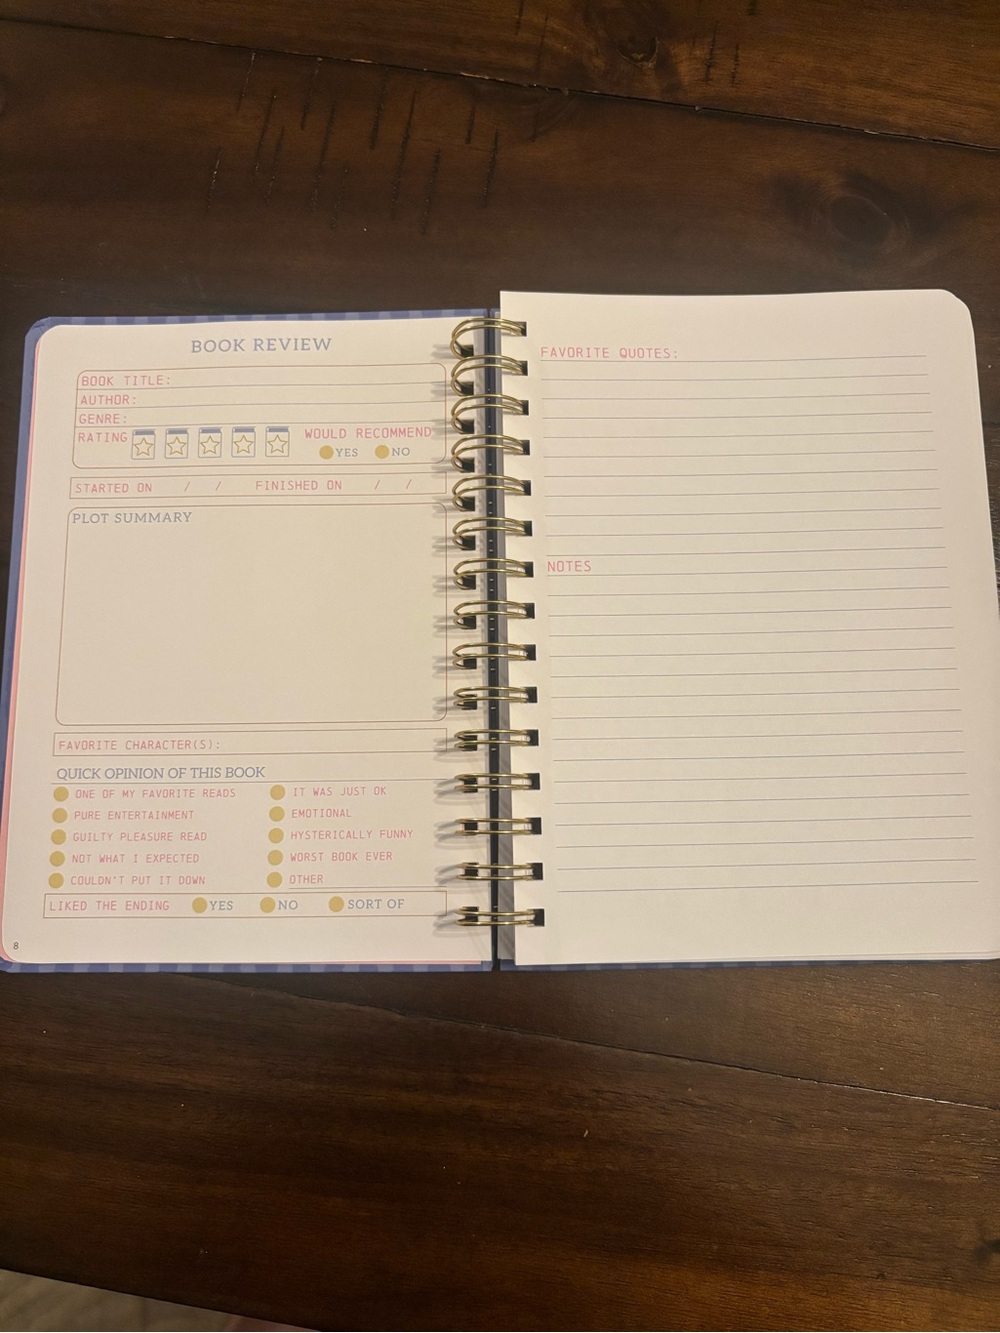 BOOK REVIEW
BOOK TITLE:
AUTHOR:
GENRE:
RATING WOULD RECOMMEND
YES NO
STARTED ON / / FINISHED ON / /
PLOT SUMMARY
FAVORITE CHARACTER(S):
QUICK OPINION OF THIS BOOK
ONE OF MY FAVORITE READS IT WAS JUST OK
PURE ENTERTAINMENT EMOTIONAL
GUILTY PLEASURE READ HYSTERICALLY FUNNY
NOT WHAT I EXPECTED WORST BOOK EVER
COULDN'T PUT IT DOWN OTHER
LIKED THE ENDING YES NO SORT OF
8
FAVORITE QUOTES:
NOTES